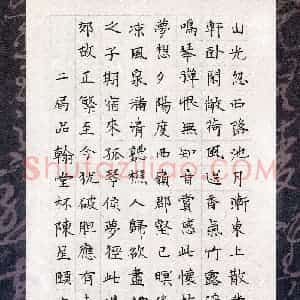 山光忽西落池月漸東上散
軒臥閑敞荷風送香氣竹露
鳴琴彈恨無知音賞感此懷
夢想夕陽度西嶺群壑
涼風泉滿清聽樵人歸欲盡
之子期宿來孤琴候蘿徑此
郊胡正繁至今猶破膽應有
二屆品翰堂杯陳星頤
Shufaziliao.com